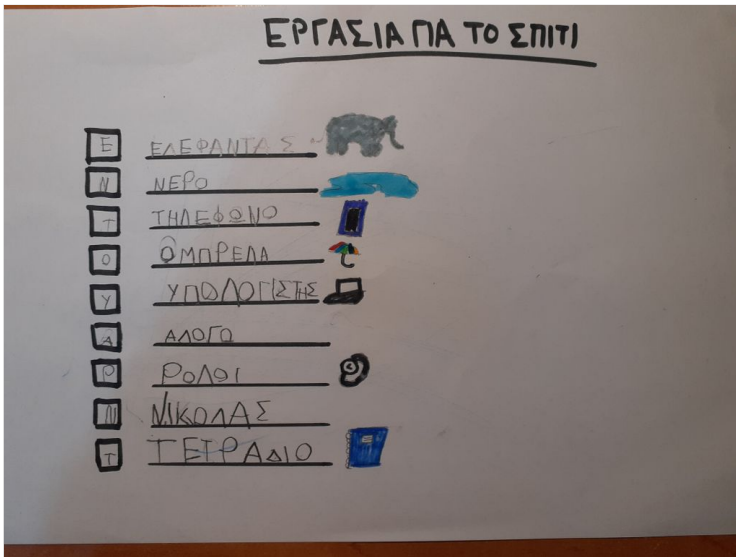 ΕΡΓΑΣΙΑ ΓΙΑ ΤΟ ΣΠΙΤΙ
Ε ΕΛΕΦΑΝΤΑΣ
Ν ΝΕΡΟ
Τ ΤΗΛΕΦΩΝΟ
Ο ΟΜΠΡΕΛΑ
Υ ΥΠΟΛΟΓΙΣΤΗΣ
Α ΑΛΟΓΟ
Ρ ΡΟΛΟΙ
Ν ΝΙΚΟΛΑΣ
Τ ΤΕΤΡΑΔΙΟ